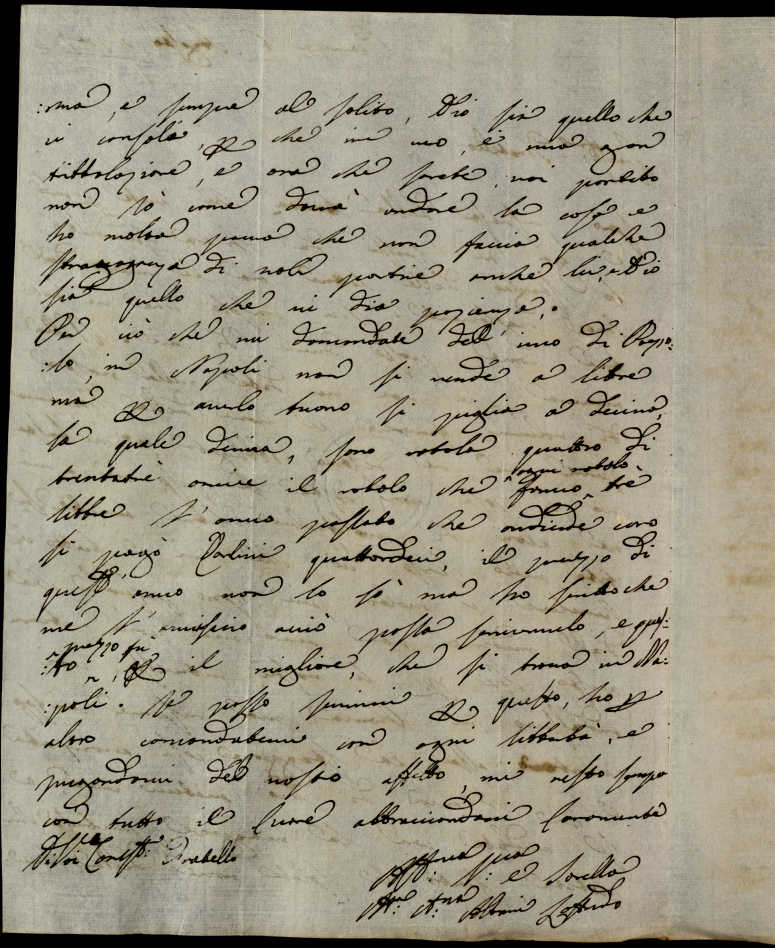 :ma, e sempre al solito, Dio sia quello che
vi consola, che in vero, è una gran
tribbolazione, e ora che sarete voi partito
non sò come dovrà andare la cosa e
ho molta paura che non faccia qualche
stravaganza di voler partire anche lui, e Dio
sia quello che vi dia pazienza.
Per ciò che mi domandate dell'
:lo, in Napoli non si vende a libre
ma averlo buono si piglia a decina,
la quale decina, sono rotola quattro di
trentatrè oncie il rotolo che ogni rotolo fanno tre
libbre L'anno passato che andiede caro
si pagò Carlini quattordici, il prezzo di
quest'anno non lo sò ma ho scritto che
me l'avvisino acciò possa scrivervelo, e ques:
:to prezzo fù il migliore, che si trova in Na:
:poli. Se posso servirvi questo, ho
altro comandatemi con ogni libbertà, e
pregandovi del vostro affetto, mi resto sempre
con tutto il Cuore abbracciandovi Caramente
Di Voi Fratello
Aff:ma S:va e Sorella